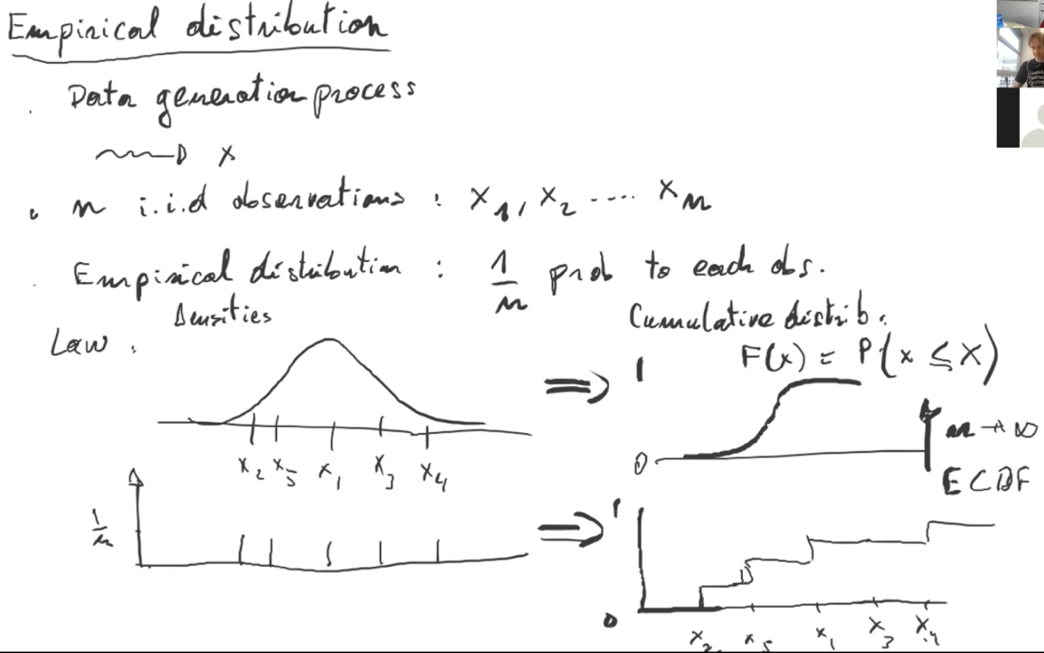 Empirical distribution
. Data generation process
x
. n i.i.d observations : x1, x2 .... xn
. Empirical distribution : 1/n prob to each obs.
Densities
Cumulative distrib.
Law :
F(x) = P(x ≤ X)
1
0
n → ∞
ECDF
x2 x5 x1 x3 x4
1/n
1
0
x2 x5 x1 x3 x4